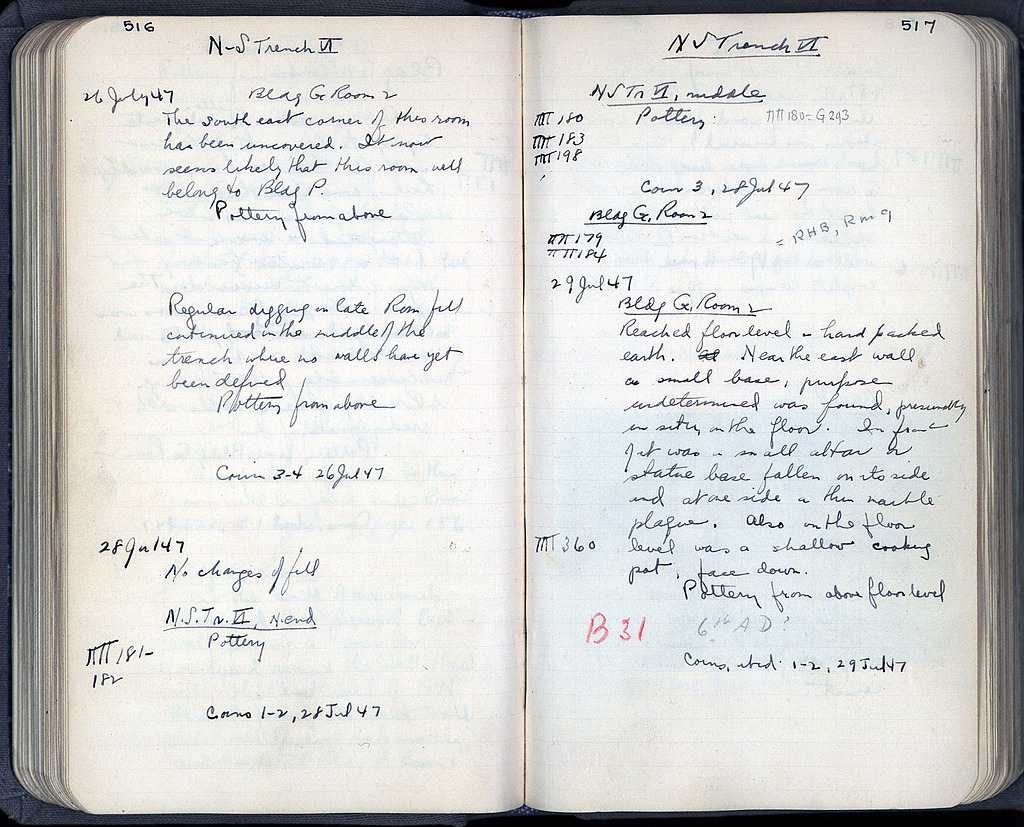 516
N-S Trench VI
26 July 47 Bldg G. Room 2
The south east corner of this room
has been uncovered. It now
seems likely that this room will
belong to Bldg P.
Pottery from above
Regular digging in late Rom. fill
continued in the middle of the
trench where no walls have yet
been defined
Pottery from above
Coins 3-4 26 Jul 47
28 Jul 47
No changes of fill
N.S. Tr. VI, N. end
Pottery
ΠΠ 181-
182
Coins 1-2, 28 Jul 47
517
N S Trench VI
N S Tr VI, middle
ΠΠ 180 Pottery. ΠΠ 180 = G 293
ΠΠ 183
ΠΠ 198
Coin 3, 28 Jul 47
Bldg G, Room 2
ΠΠ 179 = RHB, Rm 9
ΠΠ 184
29 Jul 47
Bldg G, Room 2
Reached floor level - hard packed
earth. Near the east wall
a small base, purpose
undetermined was found, presumably
in situ on the floor. In front
of it was a small altar or
statue base fallen on its side
and at one side a thin marble
plaque. Also on the floor
ΠΠ 360 level was a shallow cooking
pot, face down.
Pottery from above floor level
B 31 6th A D?
Coins, 1-2, 29 Jul 47